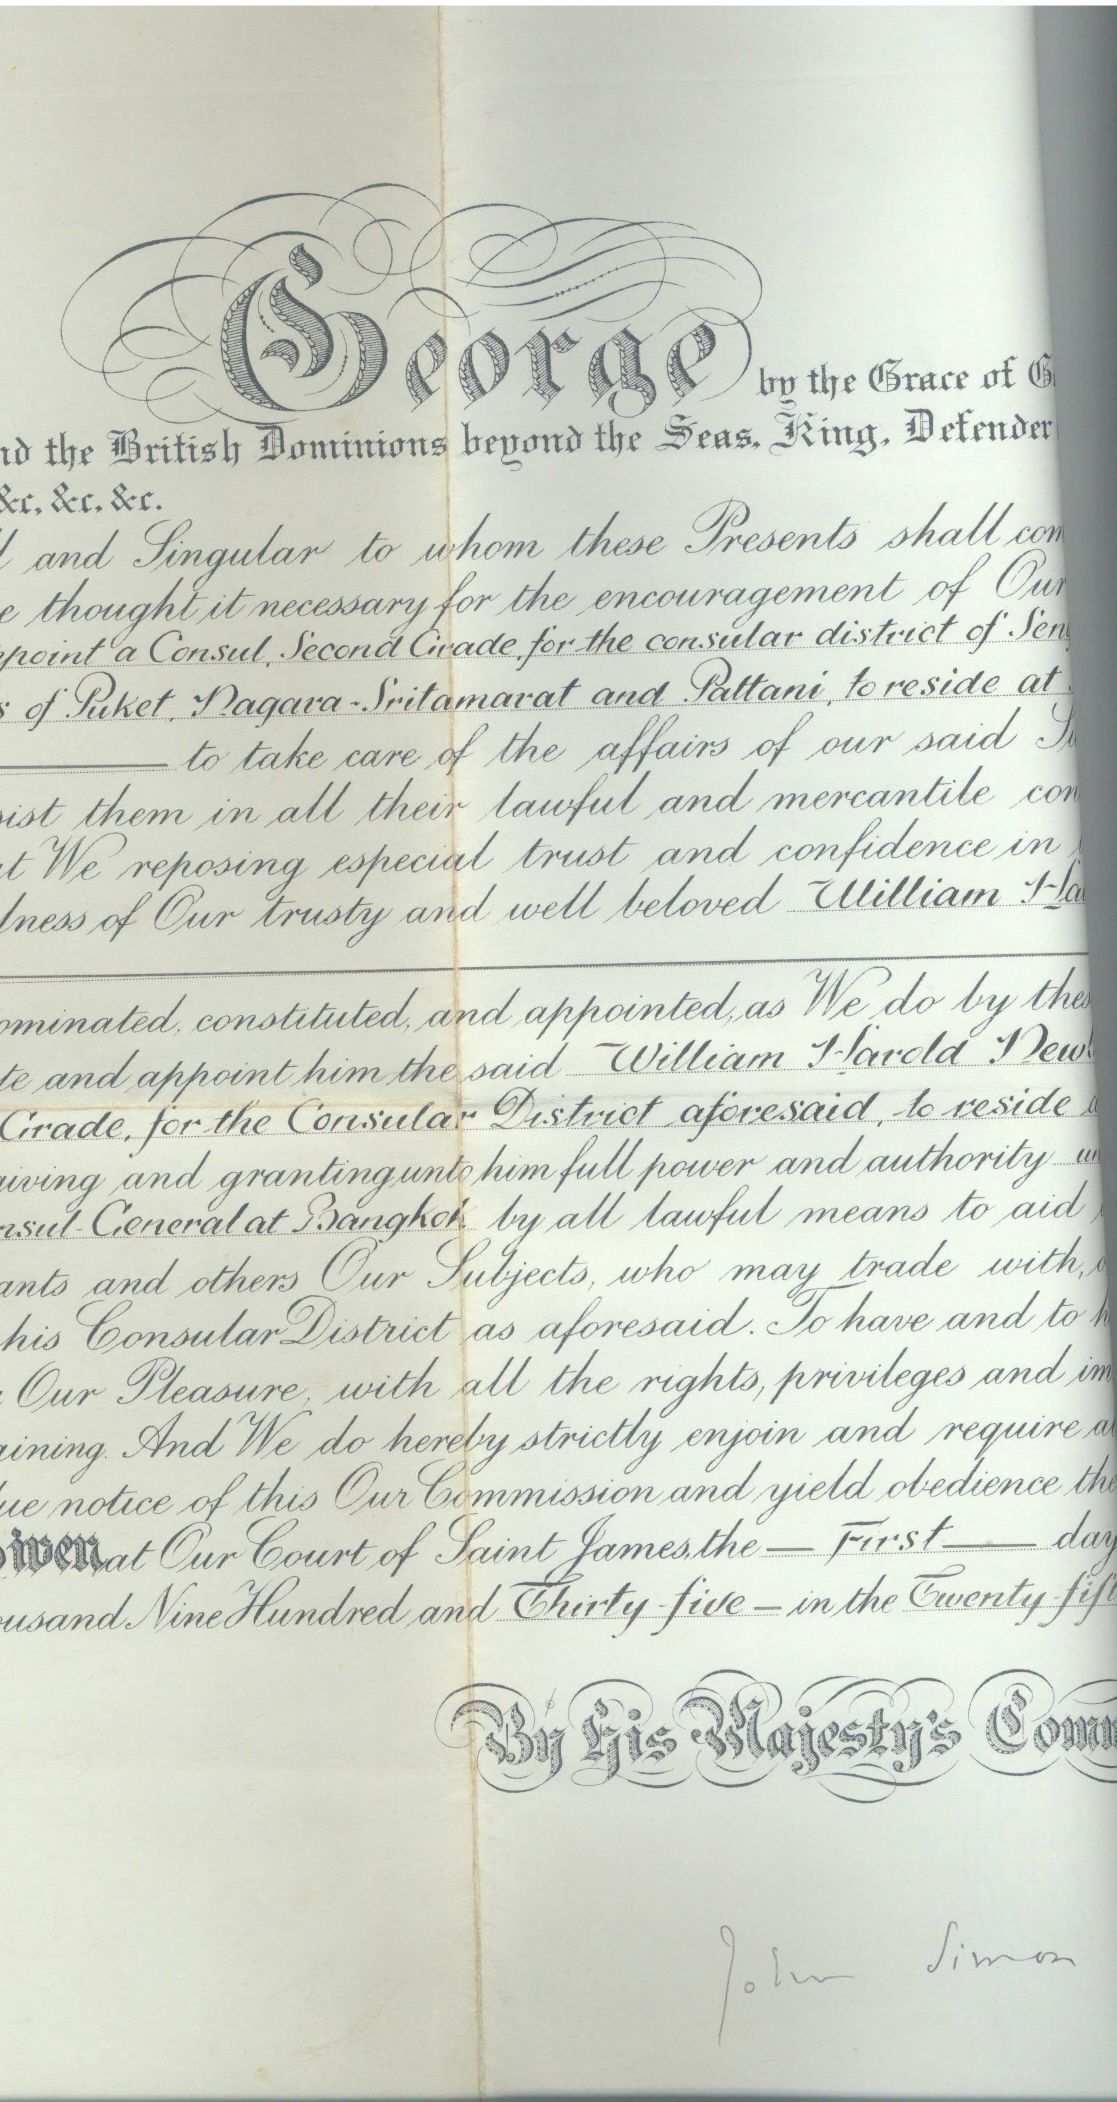 George by the Grace of G
nd the British Dominions beyond the Seas, King, Defender
&c, &c, &c.
l and Singular to whom these Presents shall com
e thought it necessary for the encouragement of Our
ppoint a Consul, Second Grade, for the consular district of Seng
s of Puket, Nagara-Sritamarat and Pattani, to reside at
to take care of the affairs of our said Su
sist them in all their lawful and mercantile con
at We reposing especial trust and confidence in
lness of Our trusty and well beloved William Ha
ominated, constituted, and appointed, as We do by thes
te and appoint him the said William Harold New
Grade, for the Consular District aforesaid, to reside a
giving and granting unto him full power and authority un
nsul-General at Bangkok by all lawful means to aid
ants and others Our Subjects, who may trade with, o
his Consular District as aforesaid. To have and to h
Our Pleasure, with all the rights, privileges and im
aining. And We do hereby strictly enjoin and require al
ue notice of this Our Commission and yield obedience the
Given at Our Court of Saint James, the — First — day
ousand Nine Hundred and Thirty-five — in the Twenty-fift
By His Majesty's Comm
John Simon